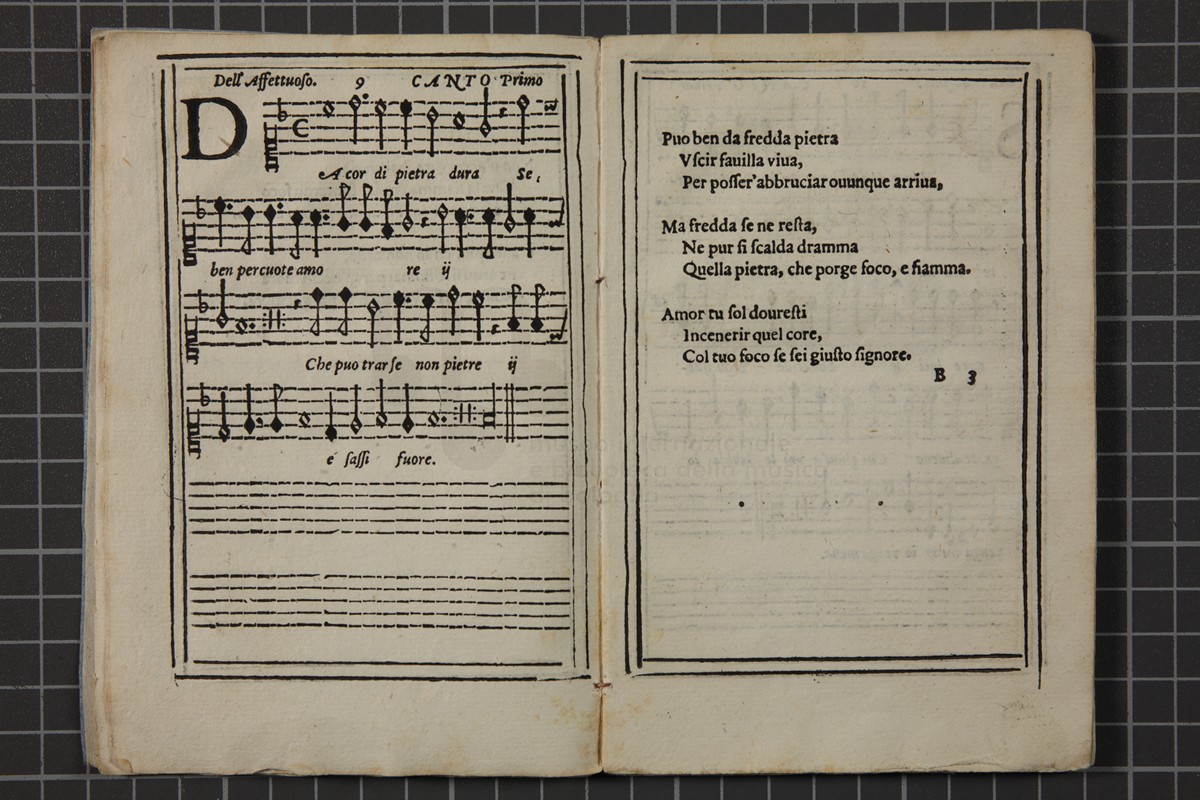 Dell'Affettuoso. 9 CANTO Primo
DA cor di pietra dura Se,
ben percuote amo re ij
Che puo trarse non pietre ij
e sassi fuore.
Puo ben da fredda pietra
Vſcir fauilla viua,
Per poſſer'abbruciar ouunque arriua,
Ma fredda ſe ne reſta,
Ne pur ſi ſcalda dramma
Quella pietra, che porge foco, e fiamma.
Amor tu ſol doureſti
Incenerir quel core,
Col tuo foco ſe ſei giuſto ſignore.
B 3
museo internazionale
e biblioteca della musica